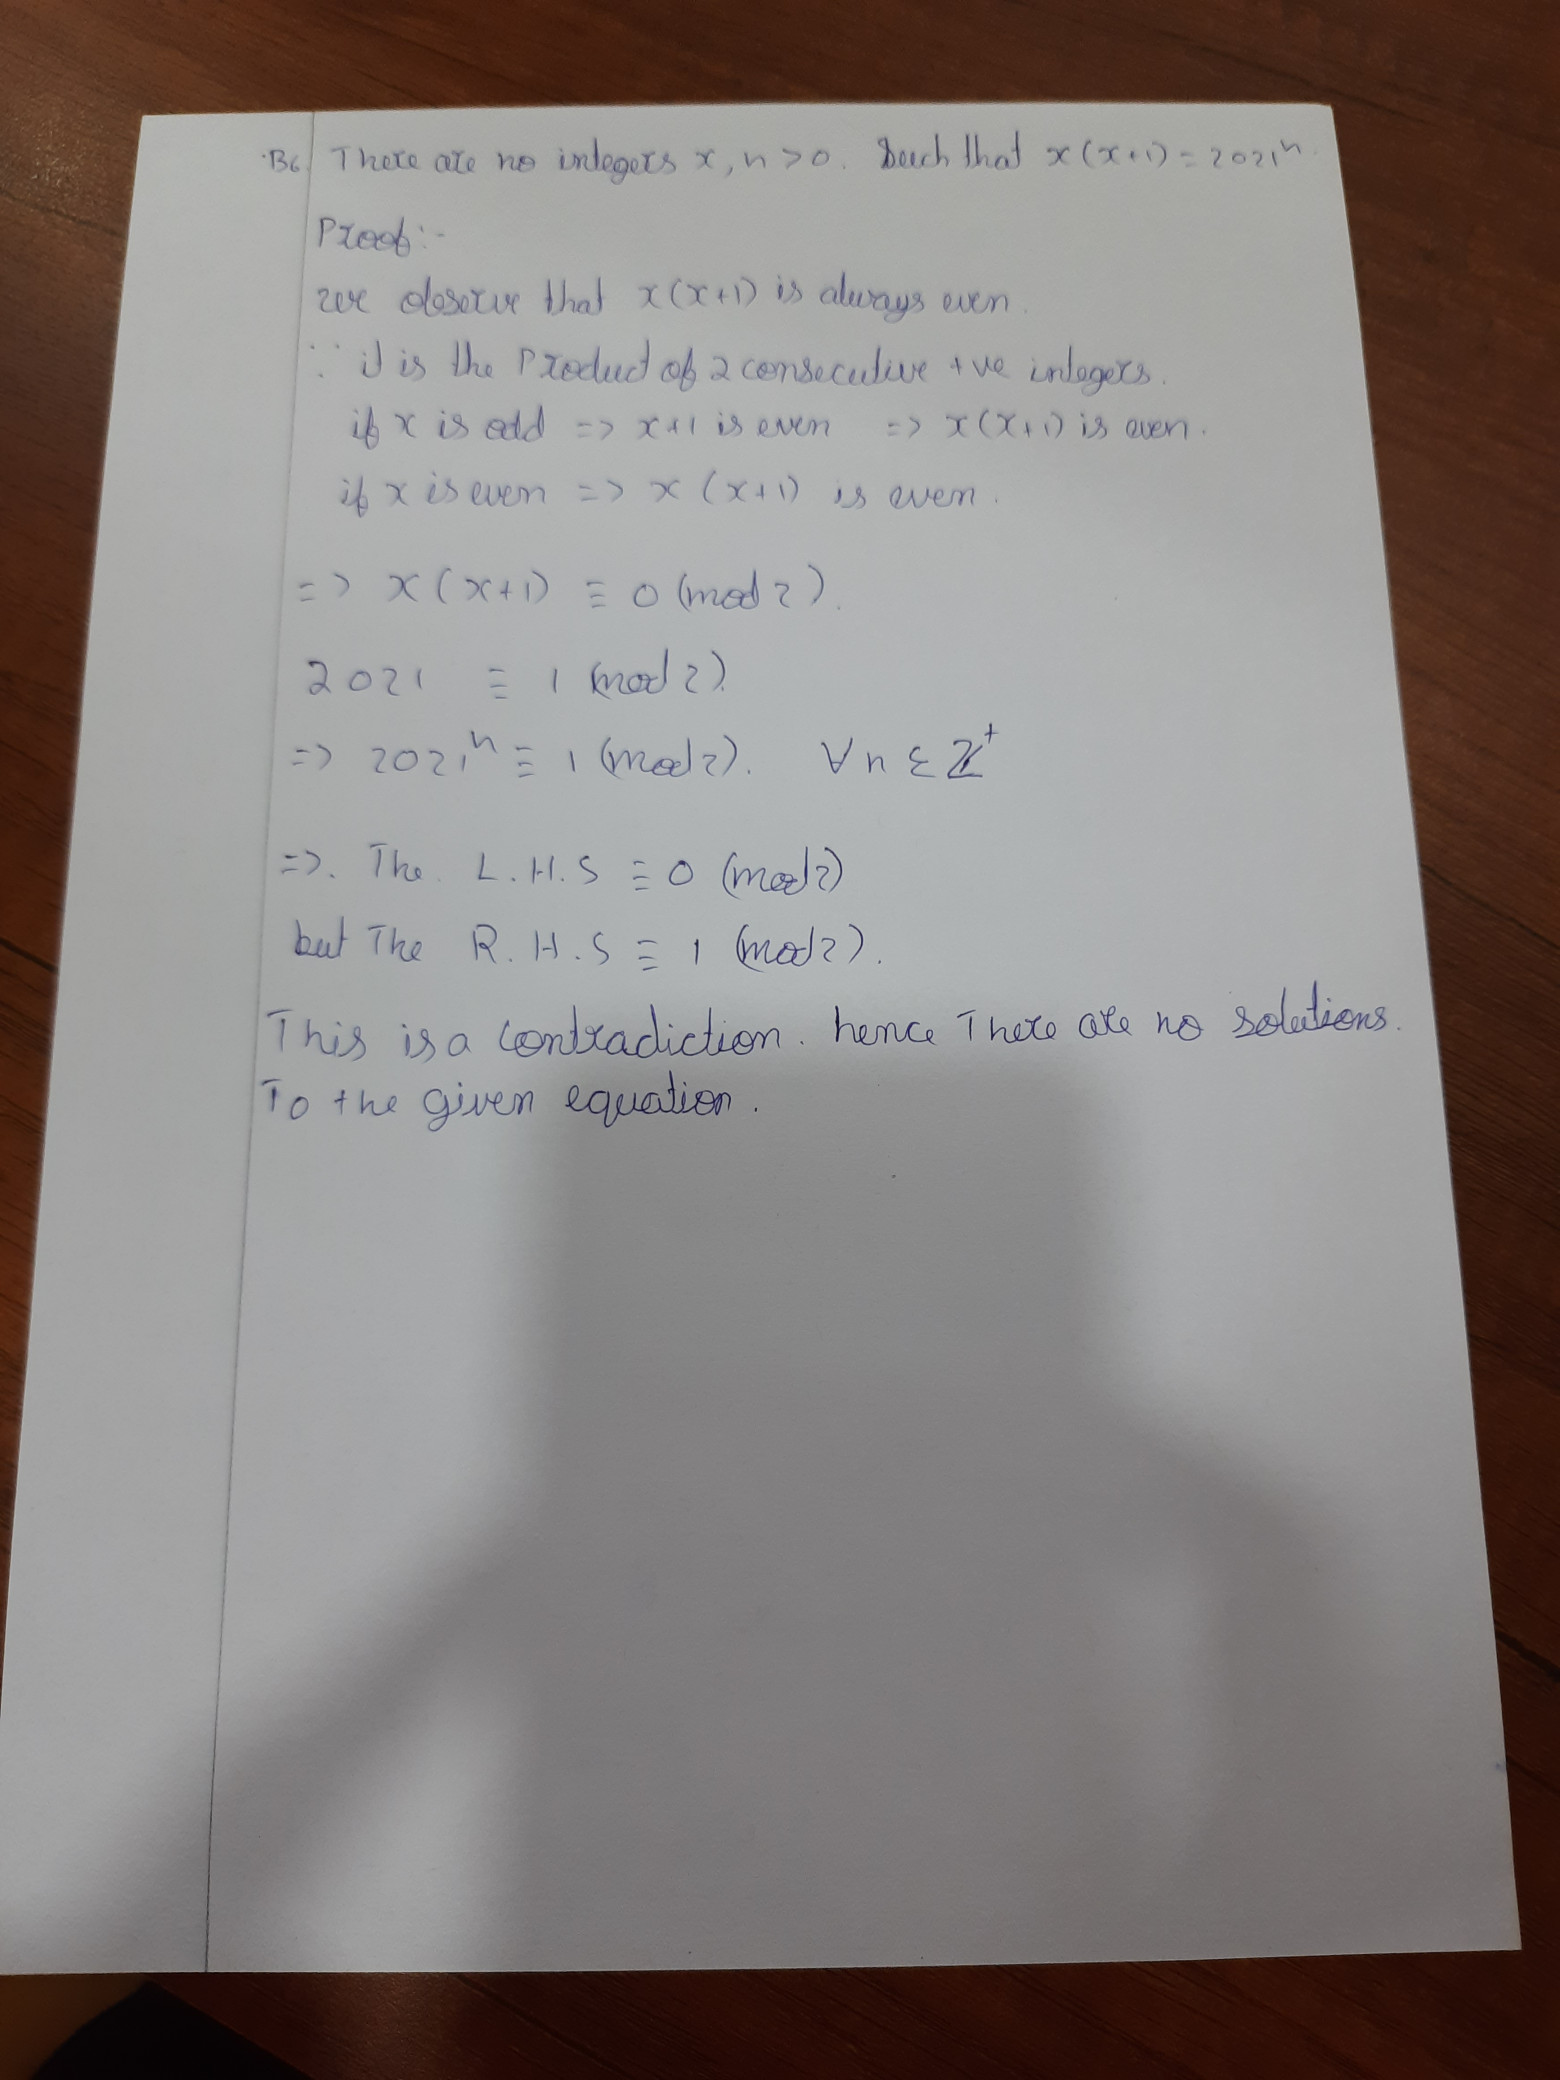 B6. There are no integers x, n > 0. Such that x(x+1) = 2021ⁿ.
Proof:-
we observe that x(x+1) is always even.
∵ it is the Product of 2 consecutive +ve integers.
if x is odd => x+1 is even => x(x+1) is even.
if x is even => x(x+1) is even.
=> x(x+1) ≡ 0 (mod 2).
2021 ≡ 1 (mod 2).
=> 2021ⁿ ≡ 1 (mod 2). ∀ n ∈ ℤ⁺
=>. The L.H.S ≡ 0 (mod 2)
but The R.H.S ≡ 1 (mod 2).
This is a contradiction. hence There are no solutions.
To the given equation.